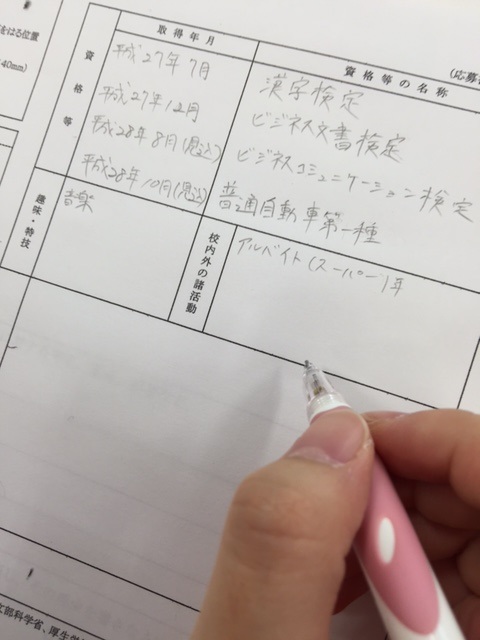 をはる位置
40mm)
取得年月
資格等の名称
(応募
資格等
平成27年7月
漢字検定
平成27年12月
ビジネス文書検定
平成28年8月(見込)
ビジネスコミュニケーション検定
平成28年10月(見込)
普通自動車第一種
趣味・特技
音楽
校内外の諸活動
アルバイト(スーパー)
部科学省、厚生労